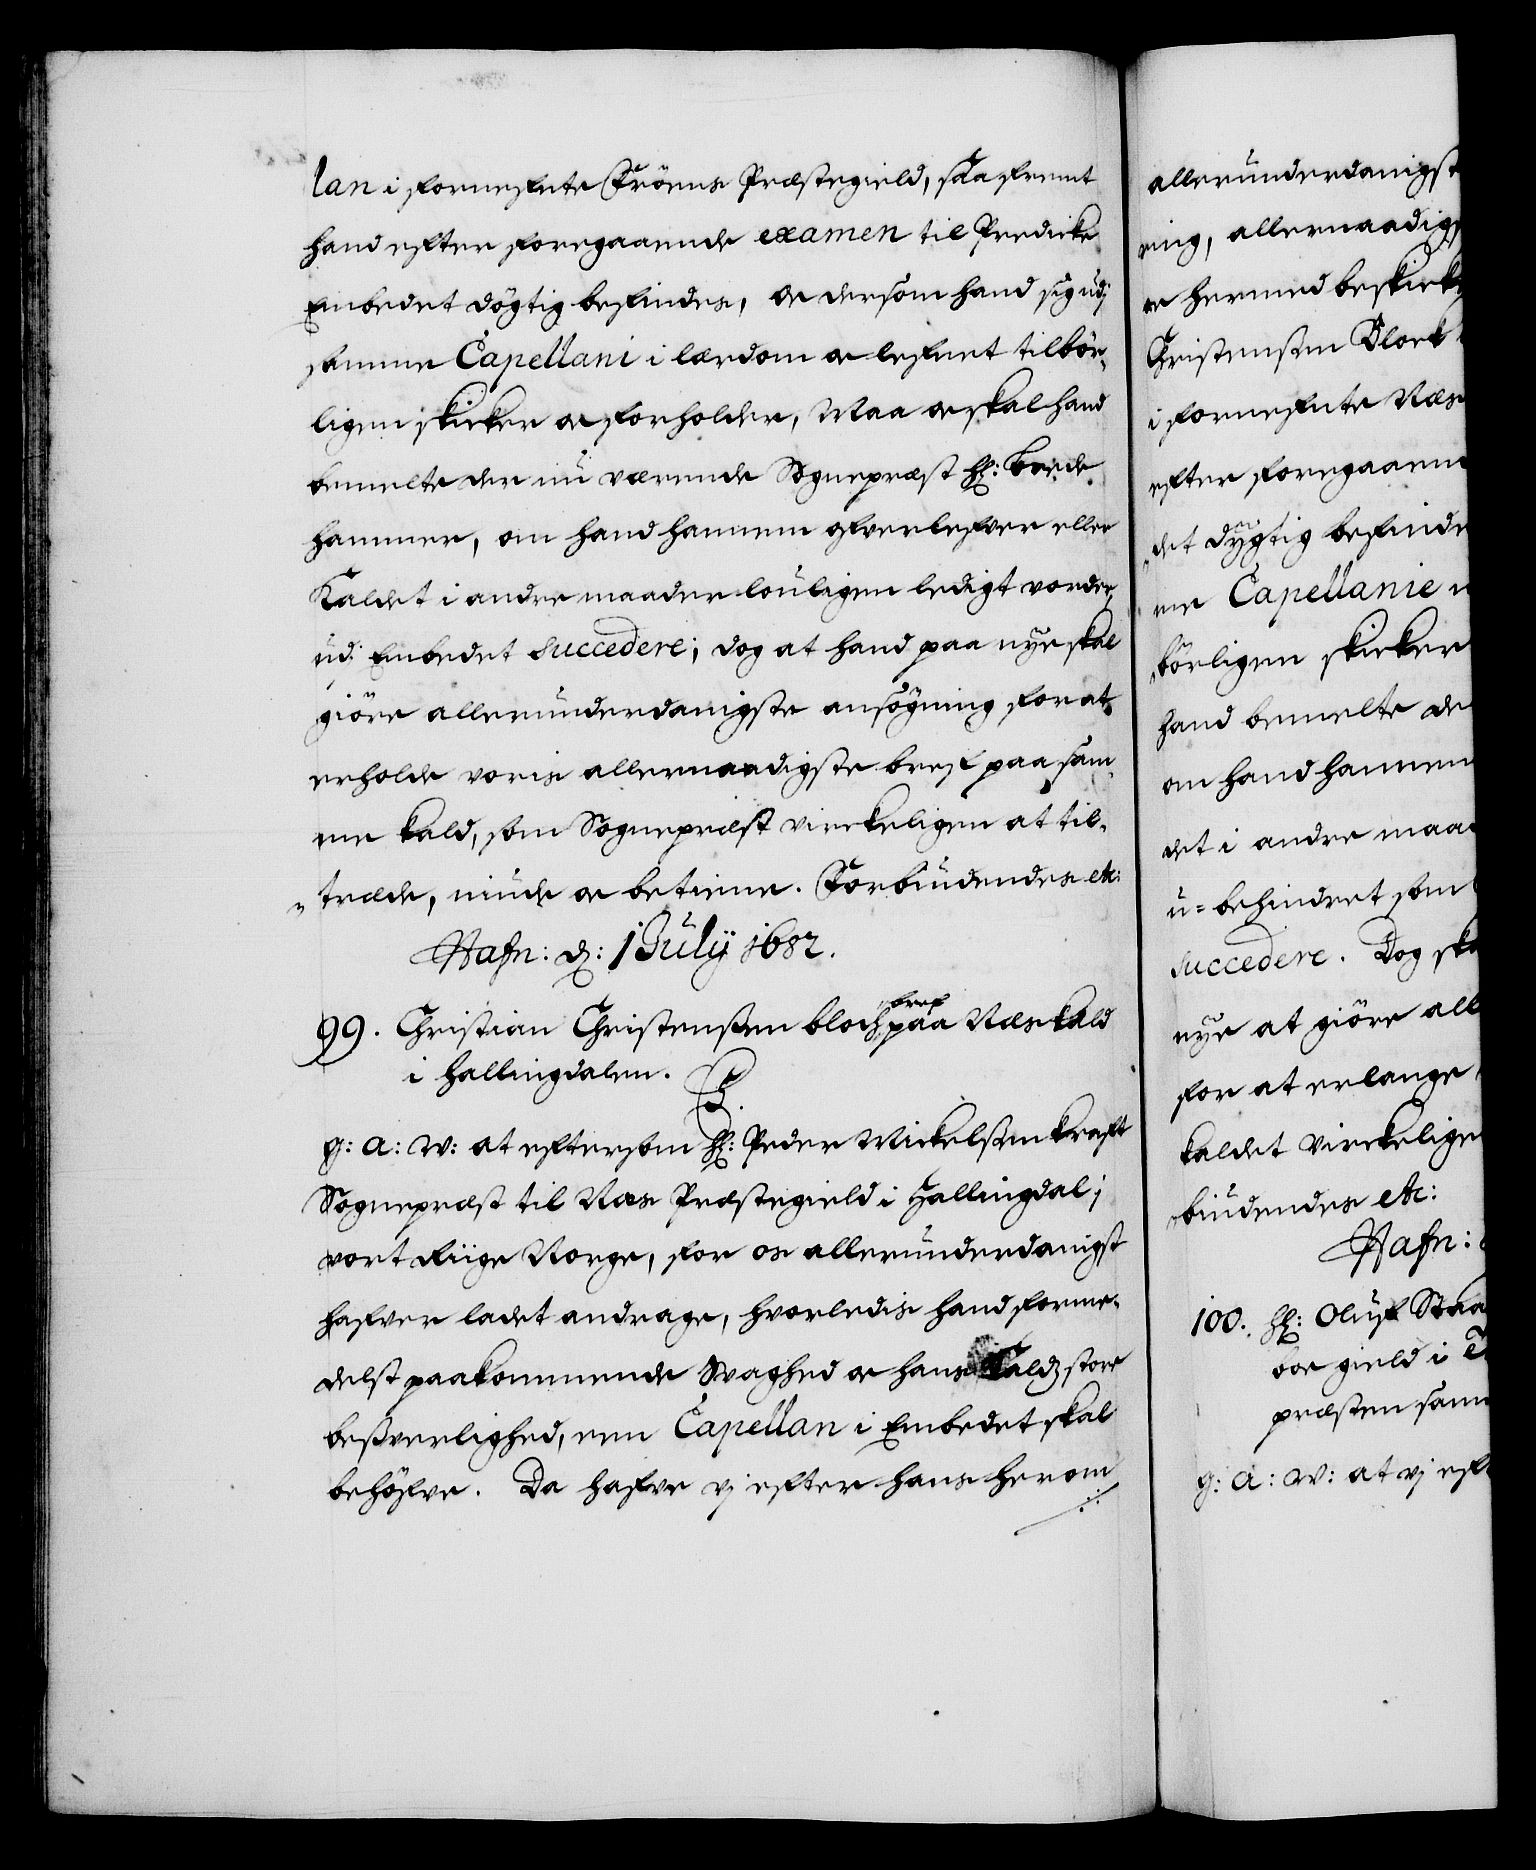 lan i fornefnte Tröens Præstegield, saa fremt
hand efter foregaaende examen til Predicke
Embedet døgtig befindes, oc dersom hand sig udj
samme Capellani i lærdom oc lefnet tilbör,
ligen skicker oc forholder, Maa oc skal hand
bemelte der nu værende Sognepræst Hr:
hammer, om hand hannem ofverlefver eller
Kaldet i andre maader louligen ledigt vorder,
udj Embedet succedere; dog at hand paa nye skal
giöre allerunderdanigste ansøgning for at
erholde voris allernaadigste bref paa sam,
me kald, som Sognepræst virckeligen at til,
„træde, niude oc betiene. Forbiudendes etc:
Hafn: d: 1 July 1682.
99. Christian Christenssen bloch bref paa Næs kald
i Hallingdalen.
C5.
G: A: W: at eftersom Hr: Peder Mickelssen kraft
Sognepræst til Næs Præstegield i Hallingdal j
vort Riige Norge, for os allerunderdanigst
hafver ladet andrage, hvorledis hand forme,
delst paakommende Svaghed oc hans Kaldz store
besverlighed, een Capellan i Embedet skal
behöfve. Da hafve vj efter hans herom
./.
allerunderdanigst
ning, allernaadigs
oc hermed beskick
Christenssen Block
i fornefnte Næs
efter foregaaen
„det dygtig befinde
me Capellanie
„börligen skicker
hand bemelte de
om hand hannem
det i andre maa
u-behindret som
succedere. Dog ska
nye at giöre all
for at erlange
kaldet virckelige
„biudendes etc:
Hafn:
100. Hr: Oluf Staa
boe gield i T
præsten sam
G: A: W: at vj eft